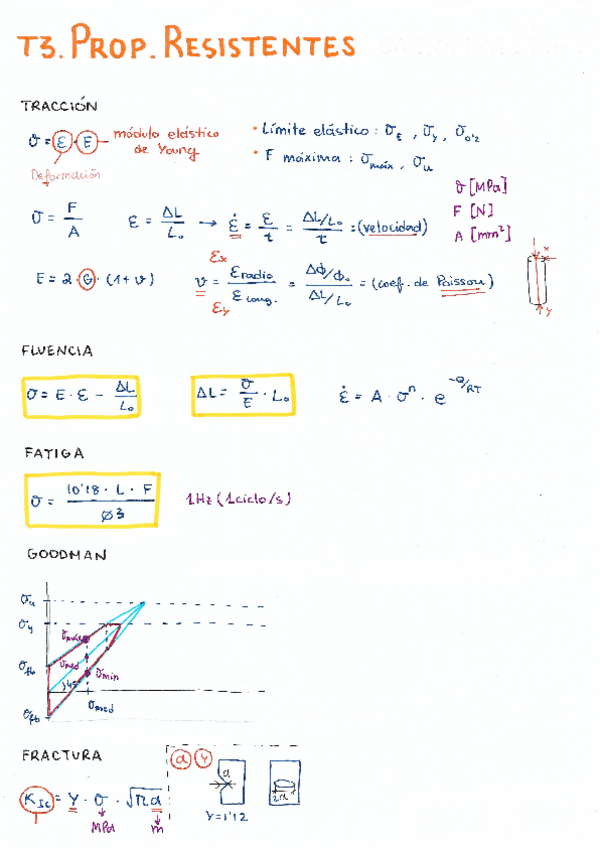 T3. PROP. RESISTENTES
TRACCIÓN
σ = ε · E módulo elástico de Young
Deformación
• Límite elástico: σE, σy, σ0'2
• F máxima: σmáx, σu
σ [MPa]
F [N]
A [mm²]
σ = F/A
ε = ΔL/L₀ → ε̇ = ε/t = (ΔL/L₀)/t = (velocidad)
E = 2 · G · (1+ν)
εx
ν = ε radio/ε long. = (Δϕ/ϕ₀)/(ΔL/L₀) = (coef. de Poisson)
εy
x
y
FLUENCIA
σ = E · ε - ΔL/L₀
ΔL = σ/E · L₀
ε̇ = A · σⁿ · e^(-Q/RT)
FATIGA
σ = (10'18 · L · F)/ø3
1Hz (1ciclo/s)
GOODMAN
σu
σy
σmáx
σfb
σmed
σmin
45
σmed
σfb
FRACTURA
a Y
KIc = Y · σ · √πa
MPa
m
a
Y=1'12
2a